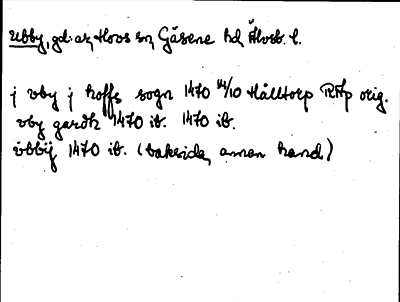 Ubby, gd. ar, Hovs sn, Gäsene hd, Älvsb. l.
j vby j hoffs sogn 1470 14/10 Hålltorp RAp orig.
vby gardh 1470 ib. 1470 ib.
übbÿ 1470 ib. (baksida, annan hand)